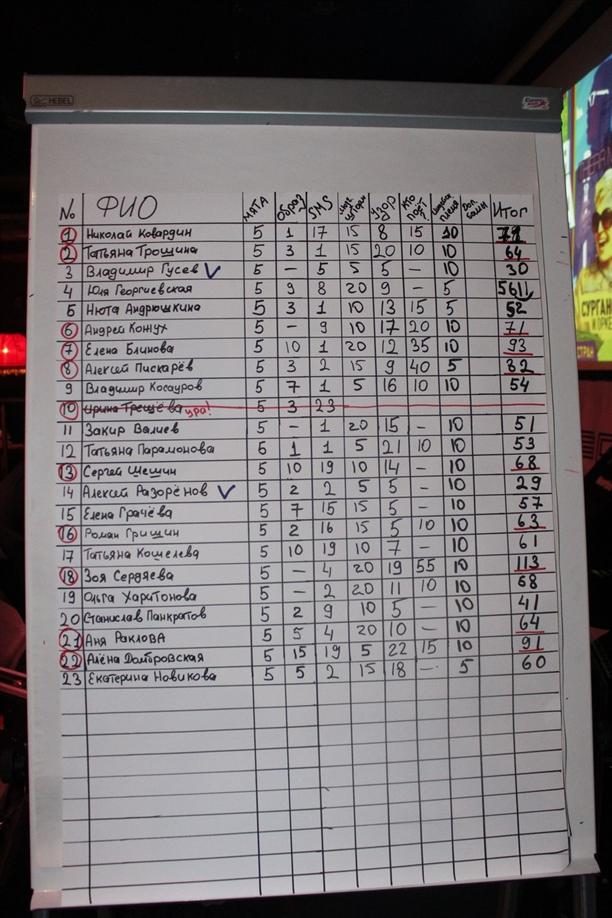 HEBEL
№ ФИО МЯТА ОБРАЗ SMS УЗОР КТО ПОЁТ? песня Доп. баллы ИТОГ
1 Николай Ковардин 5 1 17 15 8 15 10
2 Татьяна Трошина 5 3 1 15 20 10 10 64
3 Владимир Гусев V 5 – 5 5 5 – 10 30
4 Юля Георгиевская 5 9 8 20 9 – 5
5 Нюта Андрюшкина 5 3 1 10 13 15 5 52
6 Андрей Кожух 5 – 9 10 17 20 10 71
7 Елена Блинова 5 10 1 20 12 35 10 93
8 Алексей Пискарёв 5 3 2 15 9 40 5 82
9 Владимир Косауров 5 7 1 5 16 10 10 54
10 Ирина Трещёва ура! 5 3 23
11 Закир Валиев 5 – 1 20 15 – 10 51
12 Татьяна Парамонова 6 1 1 5 21 10 10 53
13 Сергей Шешин 5 10 19 10 14 – 10 68
14 Алексей Разорёнов V 5 2 2 5 5 – 10 29
15 Елена Грачёва 5 7 15 15 5 – 10 57
16 Роман Гришин 5 2 16 15 5 10 10 63
17 Татьяна Кошелева 5 10 19 10 7 – 10 61
18 Зоя Сердяева 5 – 4 20 19 55 10 113
19 Ольга Харитонова 5 – 2 20 11 10 10 58
20 Станислав Панкратов 5 2 9 10 5 – 10 41
21 Аня Раклова 5 5 4 20 10 – 10 64
22 Алёна Домбровская 5 15 19 5 22 15 10 91
23 Екатерина Новикова 5 5 2 15 18 – 5 60
СУРГАН
И ОРКЕ